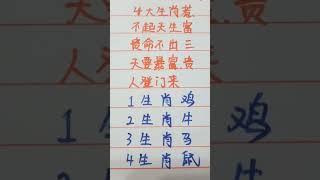 4大生肖惹
不起天生富
贵命不出三
天要暴富.贵
人登门来
1生肖鸡
2生肖牛
3生肖马
4生肖鼠